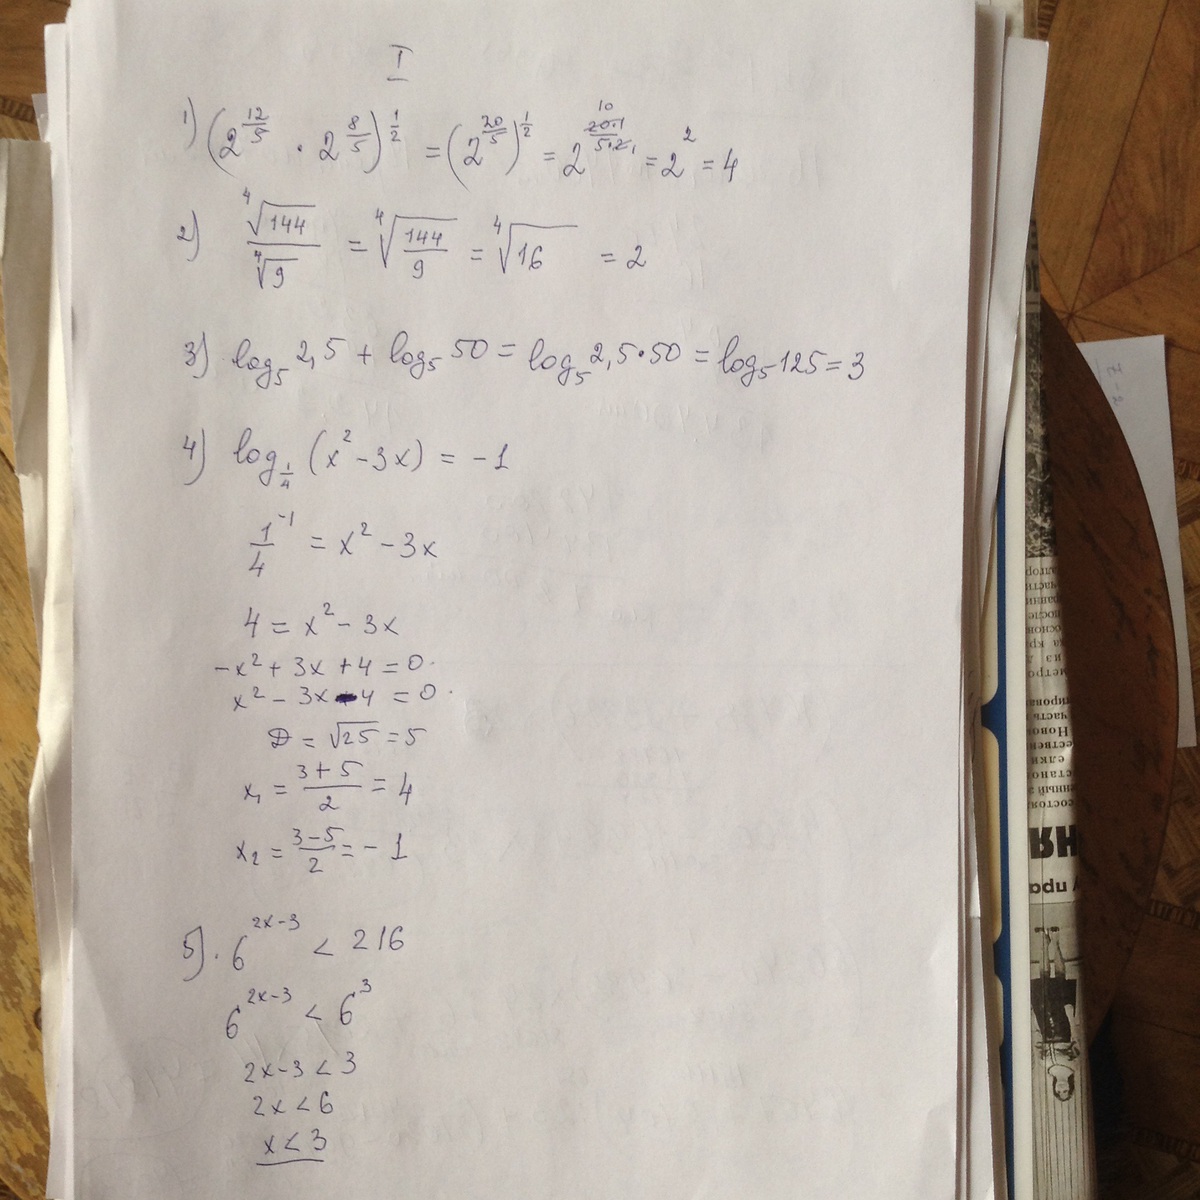 I
1) (2^{12/5} · 2^{8/5})^{1/2} = (2^{20/5})^{1/2} = 2^{\frac{\overset{10}{20}·1}{5·2_1}} = 2^2 = 4
2) \frac{\sqrt[4]{144}}{\sqrt[4]{9}} = \sqrt[4]{\frac{144}{9}} = \sqrt[4]{16} = 2
3) log_5 2,5 + log_5 50 = log_5 2,5·50 = log_5 125 = 3
4) log_{1/4} (x^2 - 3x) = -1
\frac{1}{4}^{-1} = x^2 - 3x
4 = x^2 - 3x
-x^2 + 3x + 4 = 0.
x^2 - 3x - 4 = 0.
D = √25 = 5
x_1 = \frac{3+5}{2} = 4
x_2 = \frac{3-5}{2} = -1
5). 6^{2x-3} < 216
6^{2x-3} < 6^3
2x-3 < 3
2x < 6
x < 3